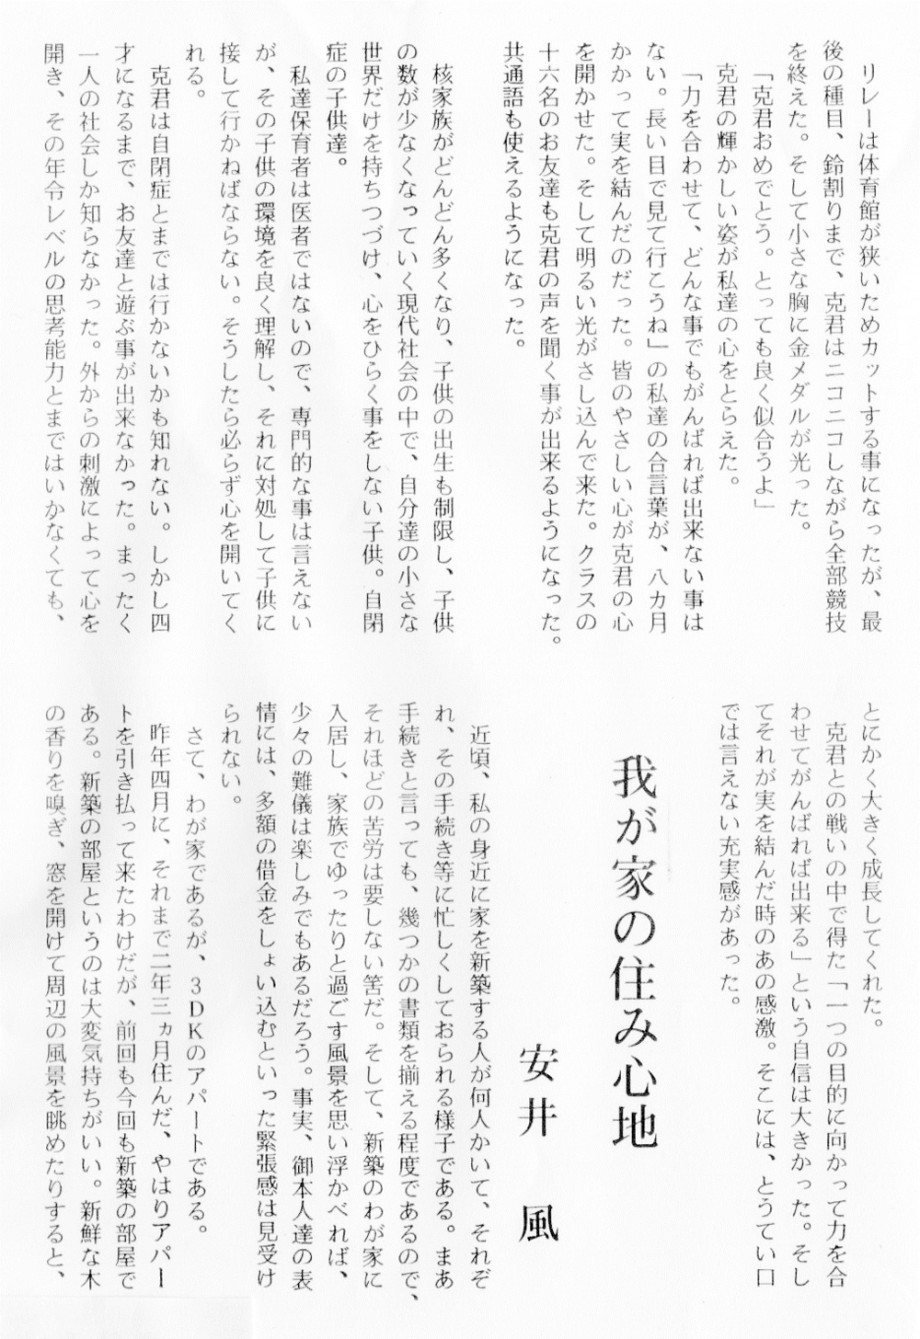 リレーは体育館が狭いためカットする事になったが、最
後の種目、鈴割りまで、克君はニコニコしながら全部競技
を終えた。そして小さな胸に金メダルが光った。
「克君おめでとう。とっても良く似合うよ」
克君の輝かしい姿が私達の心をとらえた。
「力を合わせて、どんな事でもがんばれば出来ない事は
ない。長い目で見て行こうね」の私達の合言葉が、八カ月
かかって実を結んだのだった。皆のやさしい心が克君の心
を開かせた。そして明るい光がさし込んで来た。クラスの
十六名のお友達も克君の声を聞く事が出来るようになった。
共通語も使えるようになった。
核家族がどんどん多くなり、子供の出生も制限し、子供
の数が少なくなっていく現代社会の中で、自分達の小さな
世界だけを持ちつづけ、心をひらく事をしない子供。自閉
症の子供達。
私達保育者は医者ではないので、専門的な事は言えない
が、その子供の環境を良く理解し、それに対処して子供に
接して行かねばならない。そうしたら必らず心を開いてく
れる。
克君は自閉症とまでは行かないかも知れない。しかし四
才になるまで、お友達と遊ぶ事が出来なかった。まったく
一人の社会しか知らなかった。外からの刺激によって心を
開き、その年令レベルの思考能力とまではいかなくても、
とにかく大きく成長してくれた。
克君との戦いの中で得た「一つの目的に向かって力を合
わせてがんばれば出来る」という自信は大きかった。そし
てそれが実を結んだ時のあの感激。そこには、とうてい口
では言えない充実感があった。
我が家の住み心地
安井 風
近頃、私の身近に家を新築する人が何人かいて、それぞ
れ、その手続き等に忙しくしておられる様子である。まあ
手続きと言っても、幾つかの書類を揃える程度であるので、
それほどの苦労は要しない筈だ。そして、新築のわが家に
入居し、家族でゆったりと過ごす風景を思い浮かべれば、
少々の難儀は楽しみでもあるだろう。事実、御本人達の表
情には、多額の借金をしょい込むといった緊張感は見受け
られない。
さて、わが家であるが、3DKのアパートである。
昨年四月に、それまで二年三ヵ月住んだ、やはりアパー
トを引き払って来たわけだが、前回も今回も新築の部屋で
ある。新築の部屋というのは大変気持ちがいい。新鮮な木
の香りを嗅ぎ、窓を開けて周辺の風景を眺めたりすると、